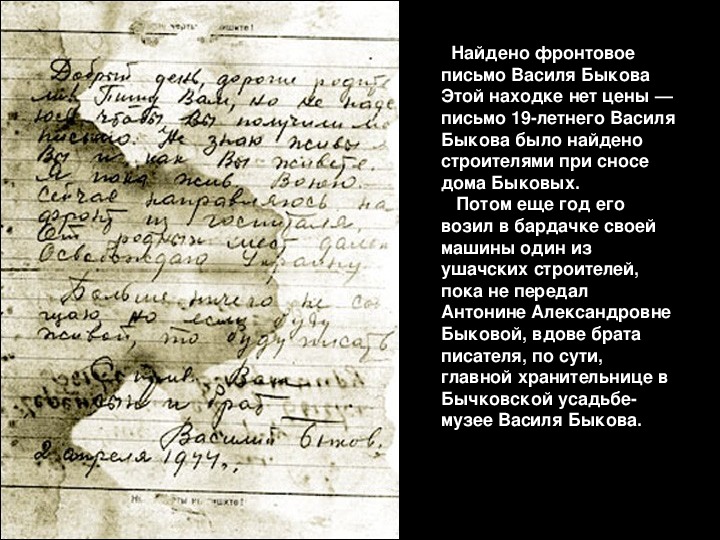 черты
ишите!
Добрый день, дорогие родите
ли. Пишу Вам, но не наде
юсь чтобы Вы получили мо
письмо. Не знаю живы
Вы и как Вы живете.
Я пока жив. Воюю.
Сейчас направляюсь на
фронт из госпиталя.
От родных мест далек
Освобождаю Украину
Больше ничего не соо
щаю но если буду
живой, то буду писать
Ваш
и брат
Василий Быков.
2 апреля 1944 г.
ишите!
Найдено фронтовое
письмо Василя Быкова
Этой находке нет цены —
письмо 19-летнего Василя
Быкова было найдено
строителями при сносе
дома Быковых.
Потом еще год его
возил в бардачке своей
машины один из
ушачских строителей,
пока не передал
Антонине Александровне
Быковой, вдове брата
писателя, по сути,
главной хранительнице в
Бычковской усадьбе-
музее Василя Быкова.